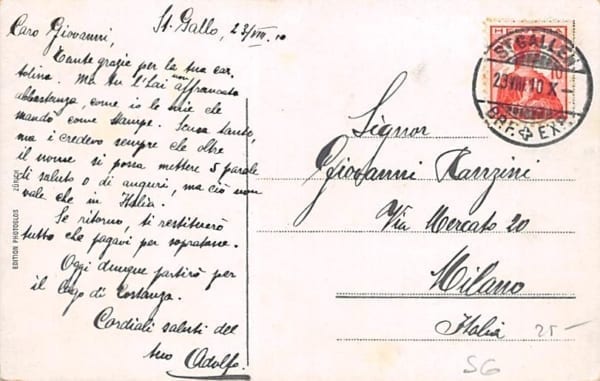 St. Gallo, 23/VIII. 10
Caro Giovanni,
Tante grazie per la tua car
tolina. Ma tu l'hai non affrancata
abbastanza, come io le mie che
mando come stampe. Scusa tanto,
ma i credevo sempre che oltre
il nome si possa mettere 5 parole
di saluto o di auguri, ma ciò non
vale che in Italia.
Se ritorno, ti restituirò
tutto che pagavi per sopratassa.
Oggi dunque partirò per
il Lago di Costanza.
Cordiali saluti del
tuo Adolfo.
EDITION PHOTOGLOB ZÜRICH
HELVETIA
10
ST. GALLEN
23.VIII.10.X
BRF. EXP.
Signor
Giovanni Ranzini
Via Mercato 20
Milano
Italia
25-
SG